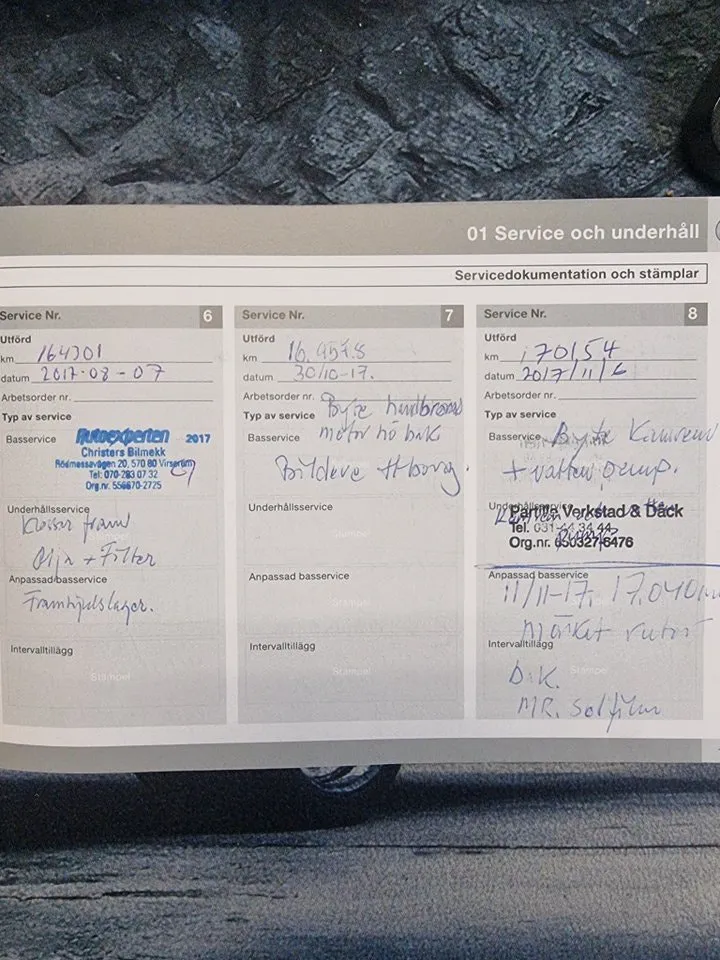 01 Service och underhåll
Servicedokumentation och stämplar
Service Nr. 6
Utförd
km 164301
datum 2017-08-07
Arbetsorder nr.
Typ av service
Basservice
Autoexperten 2017
Christers Bilmekk
Rösmossavägen 20, 570 80 Virserum
Tel: 070-283 07 32
Org.nr. 556670-2725
Underhållsservice
fram
Olja + Filter
Anpassad basservice
Framhjulslager.
Intervalltillägg
Stämpel
Service Nr. 7
Utförd
km 16.957.8
datum 30/10-17.
Arbetsorder nr.
Byte handbroms
Typ av service
Basservice motor hö bak
Bildeve Hborg.
Underhållsservice
Anpassad basservice
Stämpel
Intervalltillägg
Stämpel
Service Nr. 8
Utförd
km 170154
datum 2017/11/6
Arbetsorder nr.
Typ av service
Basservice Byte Kamrem
+ vatten pump.
Underhållsservice
Partille Verkstad & Däck
Tel. 031-44 34 44
Org.nr. 650327-6476
Anpassad basservice
11/11-17. 17.040
mörka rutor
Intervalltillägg
D.K.
MR. solfilm